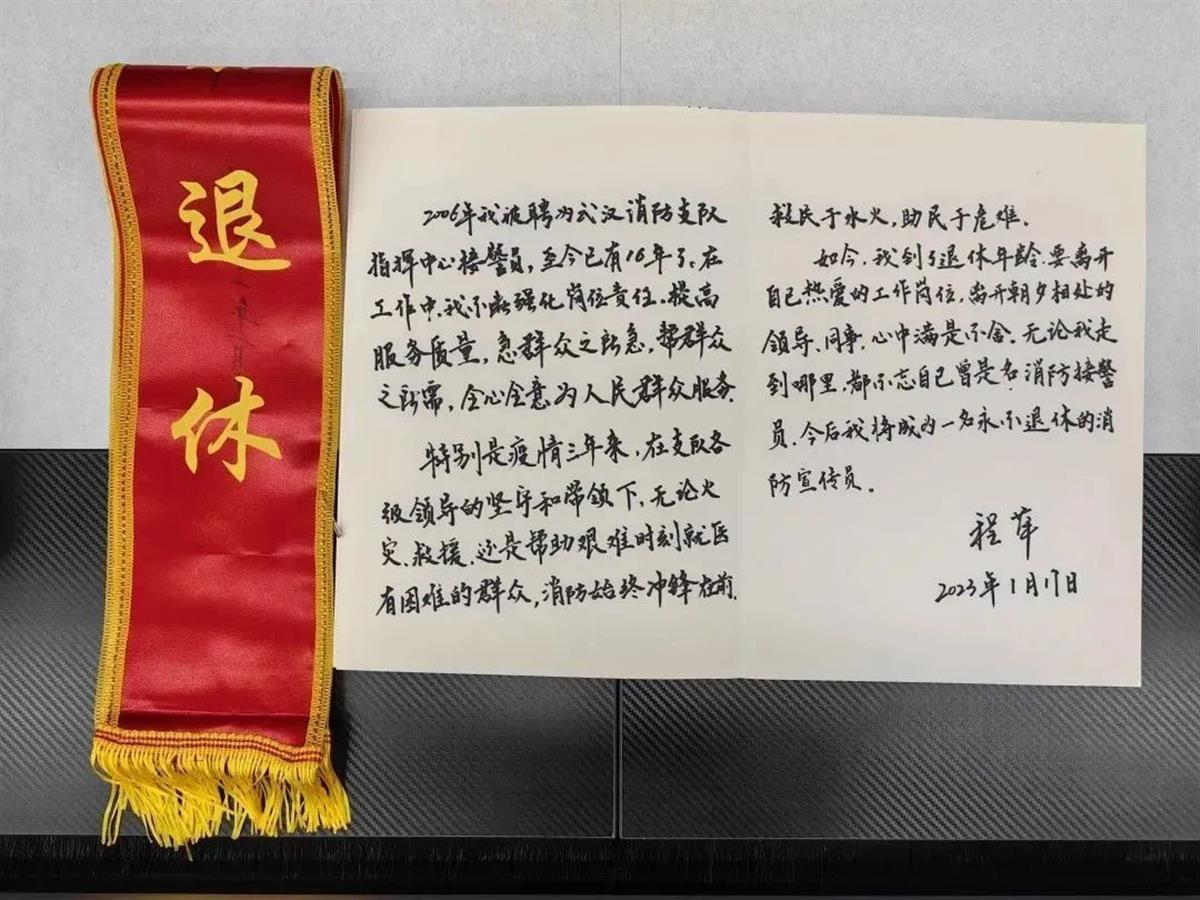 退休
2006年我被聘为武汉消防支队
指挥中心接警员，至今已有16年了，在
工作中，我不断强化岗位责任，提高
服务质量，急群众之所急，帮群众
之所需，全心全意为人民群众服务。
特别是疫情三年来，在支队各
级领导的坚守和带领下，无论火
灾、救援，还是帮助艰难时刻就医
有困难的群众，消防始终冲锋在前，
救民于水火，助民于危难。
如今，我到了退休年龄，要离开
自己热爱的工作岗位，离开朝夕相处的
领导、同事，心中满是不舍。无论我走
到哪里，都不忘自己曾是名消防接警
员，今后我将成为一名永不退休的消
防宣传员。
程萍
2023年1月17日